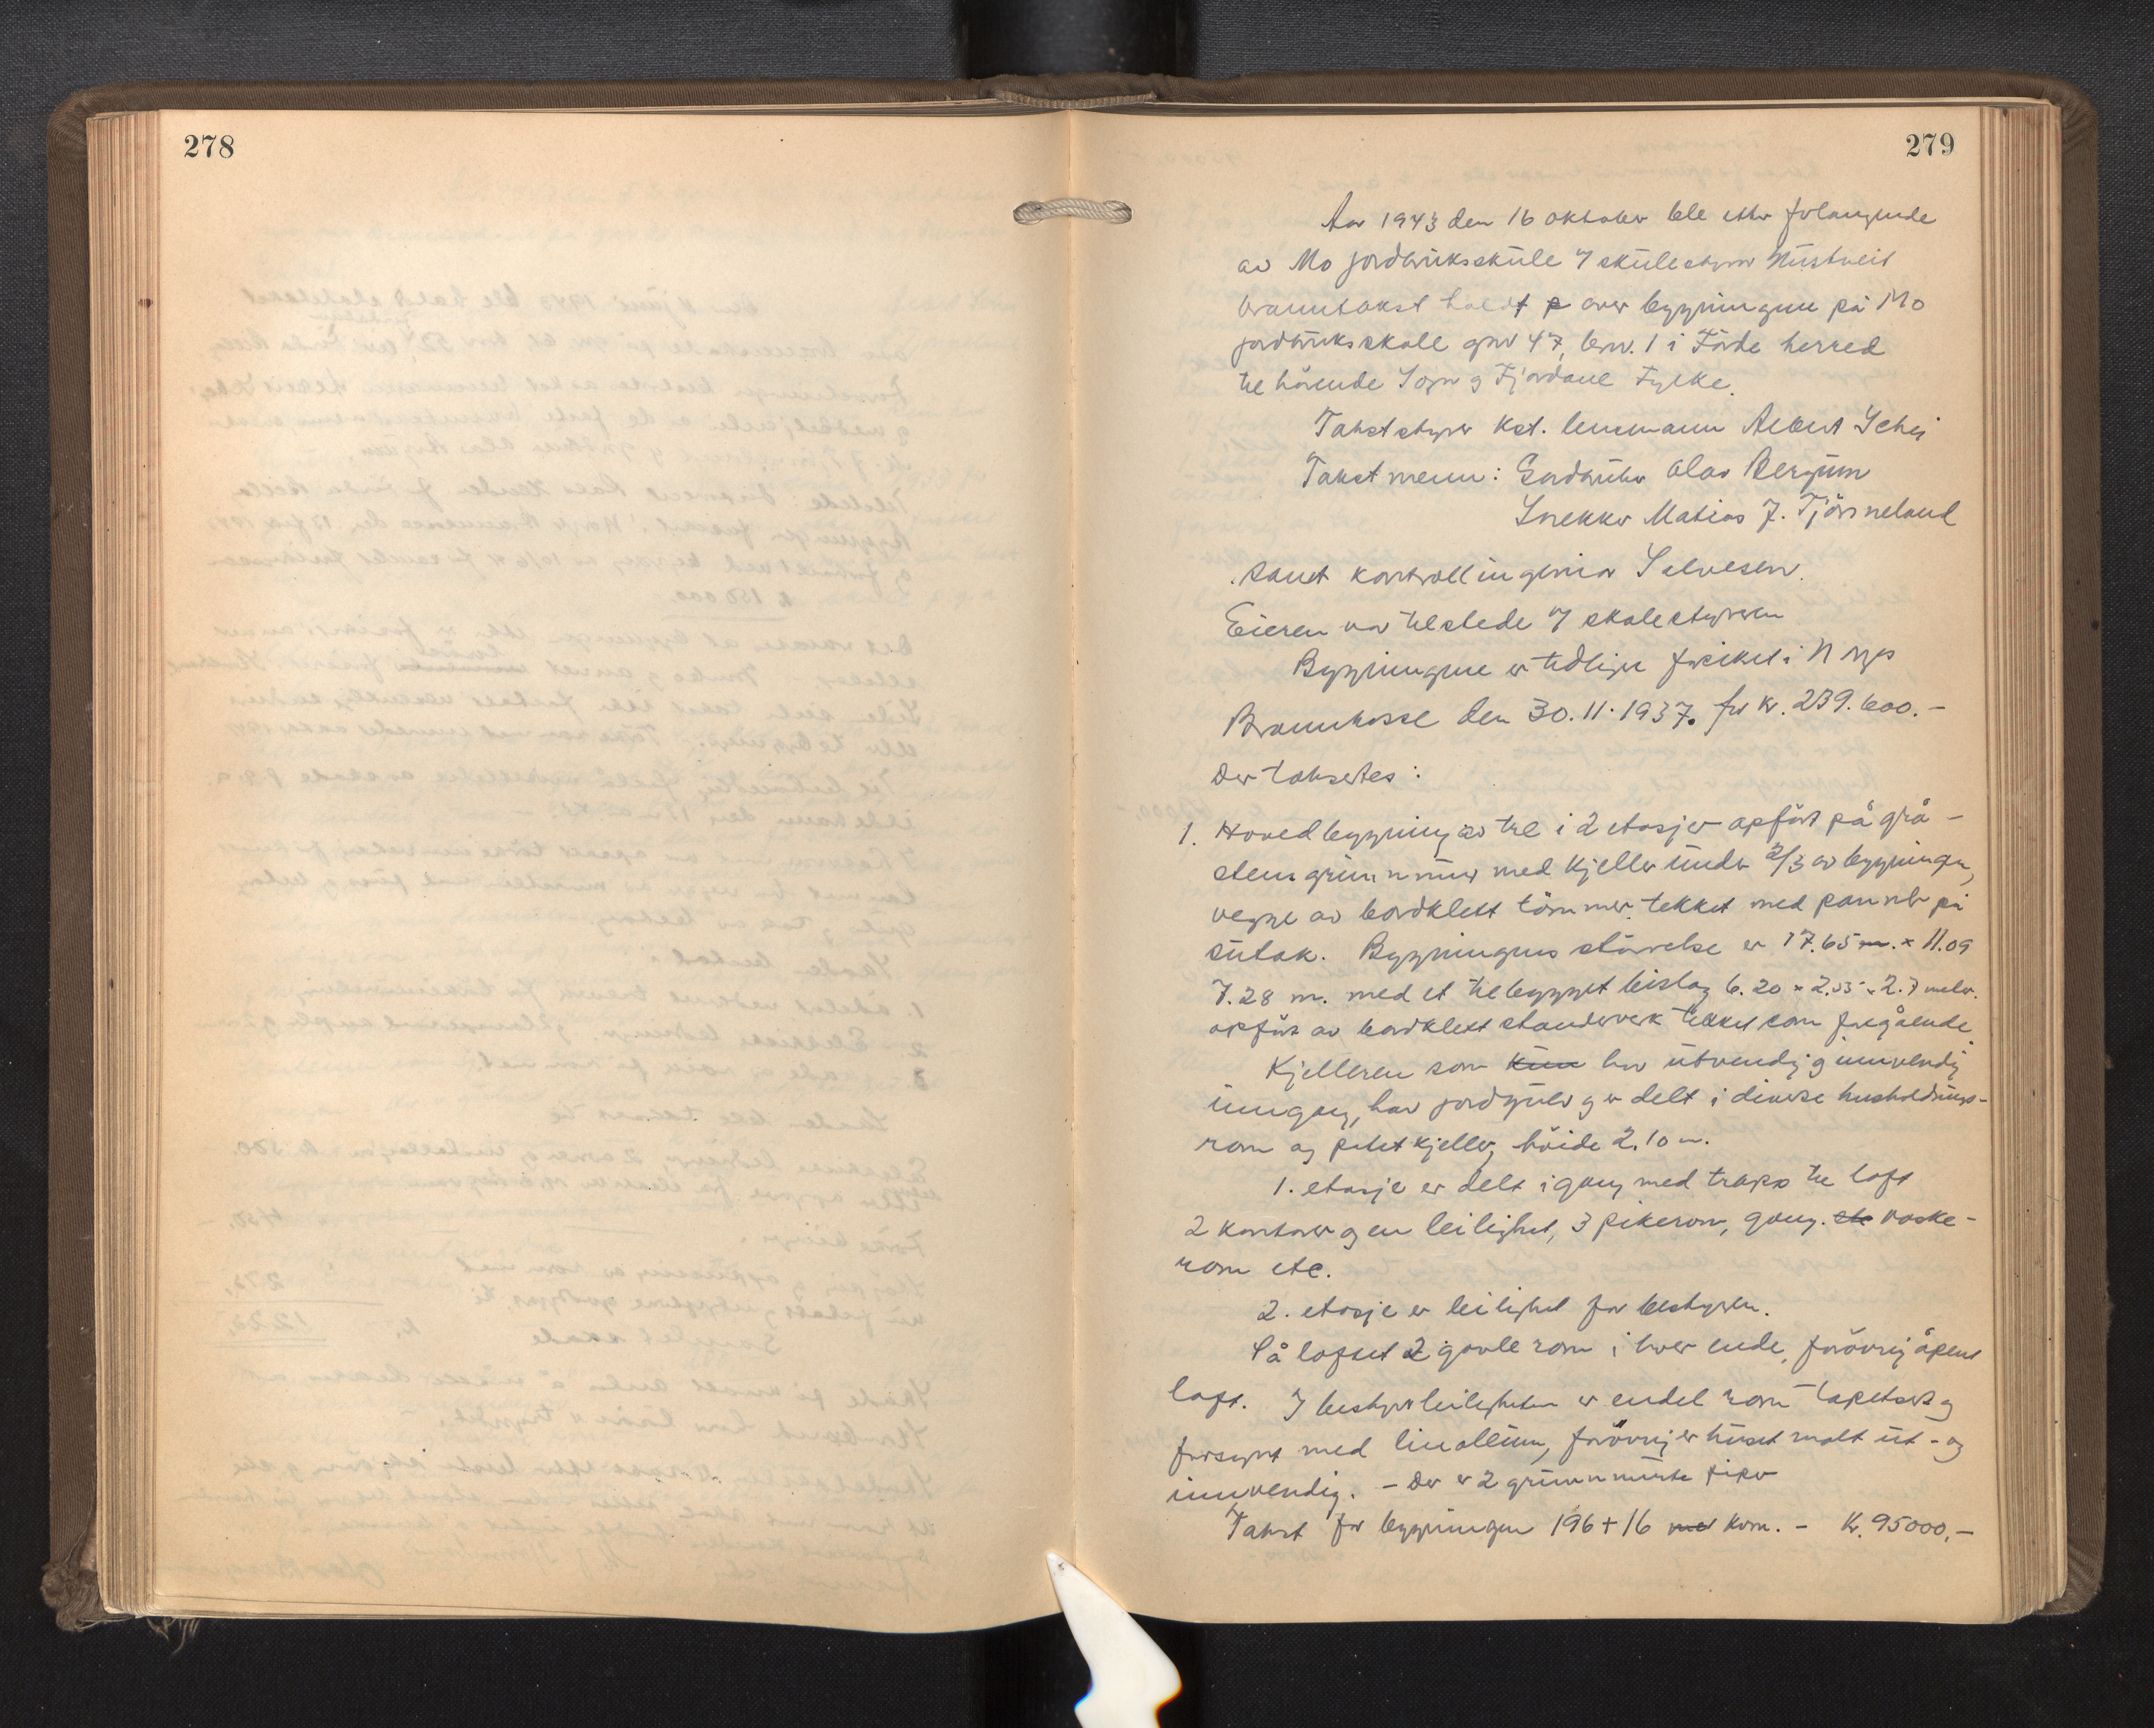 278
279
Aar 1943 den 16 oktober ble etter forlangende
av Mo jordbruksskule v/ skulestyrer Nustveit
branntakst holdt p over bygningene på Mo
jordbruksskole gnr 47, bnr. 1 i Förde herred
tilhörende Sogn og Fjordane Fylke.
Takststyrer Kst. lensmann Albert Schei
Takstmenn: Gardbruker Olav Bergum
Snekker Matias J. Tjönneland
samt kontrollingeniør Salvesen.
Eieren var tilstede v/ skolestyreren
Bygningene er tidligere forsikret i Norges
Brannkasse den 30.11.1937. for kr. 239.600.-
Der takseres:
1. Hovedbygning av tre i 2 etasjer opfört på grå-
stens grunnmur med kjeller under 2/3 av bygningen,
vegger av bordklett tömmer, tekket med panner på
sutak. Bygningens störrelse er 17.65 m. x 11.09
7.28 m. med et tilbygget bislag 6.20 x 2.55 x 2.7 meter.
opfört av bordklett standerverk tekket som foregående
Kjelleren som kun har utvendig og innvendig
inngang, har jordgulv og er delt i diverse husholdnings-
rom og potetkjeller, höide 2.10 m.
1. etasje er delt i gang med trapp til loft
2 kontorer og en leilighet, 3 pikerom, gang. etc vaske-
rom etc.
2. etasje er leilighet for bestyreren.
På loftet 2 gavlerom i hver ende, forövrig åpent
loft. I bestyrerleiligheten er endel rom tapetsert og
forsynt med linoleum, forövrig er huset malt ut- og
innvendig. - Der er 2 grunnmurte piper
Takst for bygningen 196 + 16 kvm. - Kr. 95000,-